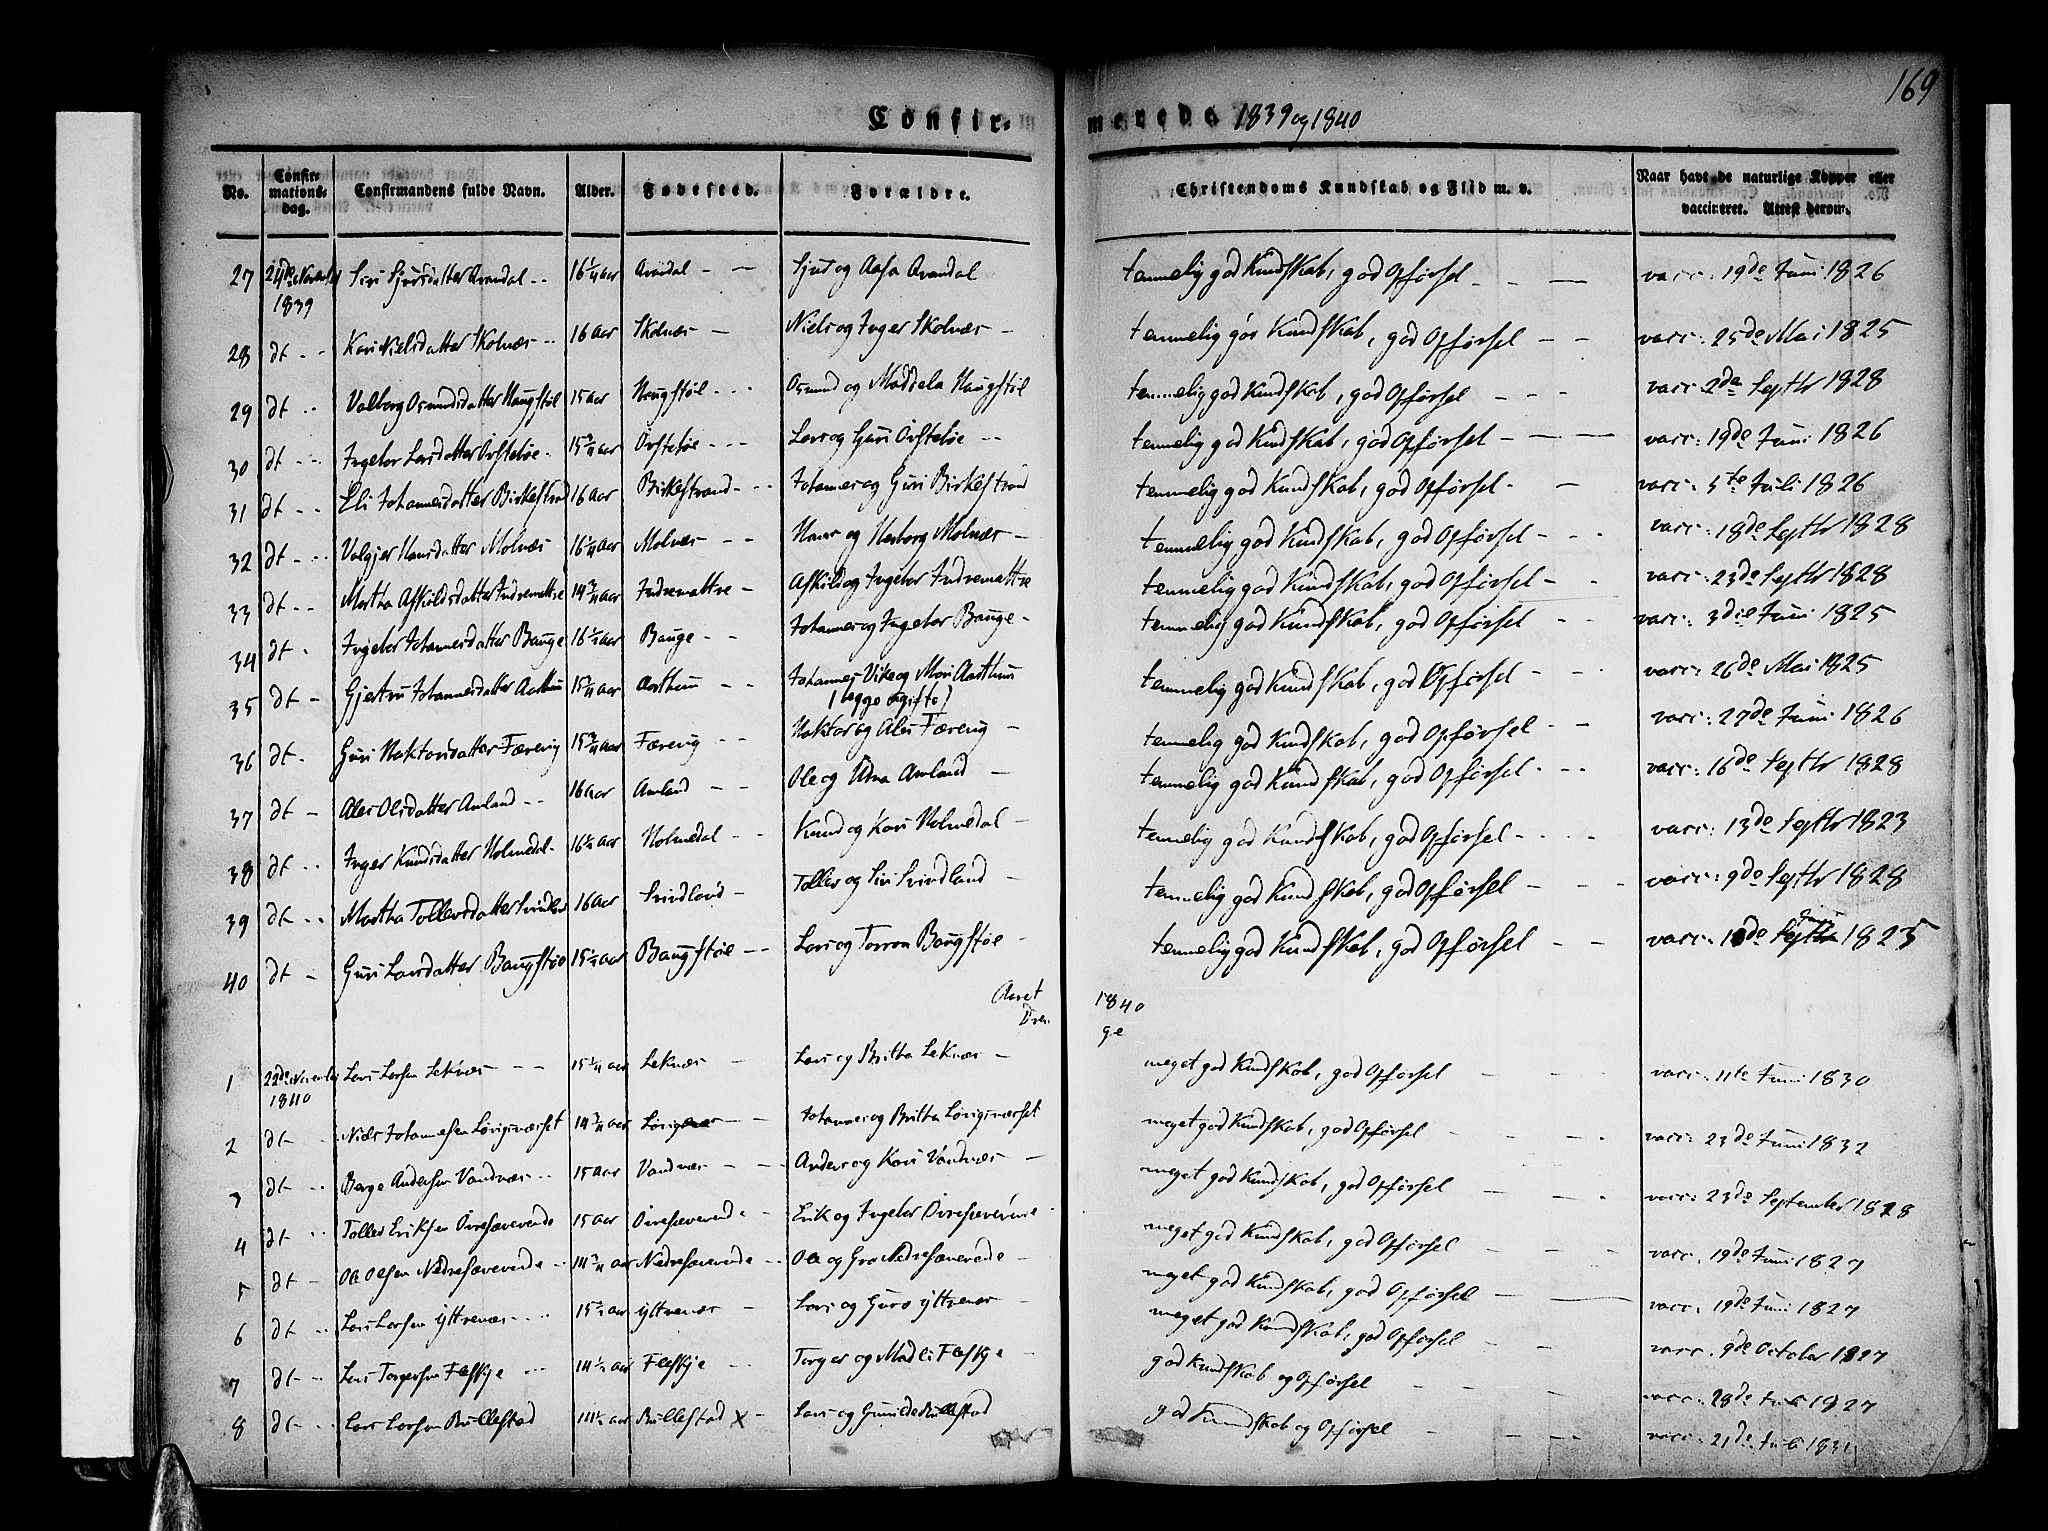 169
Confirmerede 1839 og 1840
No. Confirmationsdag. Confirmandens fulde Navn. Alder. Fødested. Forældre. Christendoms Kundskab og Flid m. v. Naar havt de naturlige Kopper eller vaccineret. Attest herom.
27 24de November 1839 Siri Sjursdatter Avendal 16 1/4 Aar Avendal Sjur og Aasa Avendal temmelig god Kundskab, god Opførsel vacc: 19de Juni 1826
28 dt Kari Nielsdatter Skolnæs 16 Aar Skolnæs Niels og Inger Skolnæs temmelig god Kundskab, god Opførsel vacc: 25de Mai 1825
29 dt Valborg Osmundsdatter Haugstøl 15 Aar Haugstøl Osmund og Maddela Haugstøl temmelig god Kundskab, god Opførsel vacc: 2de Septbr 1828
30 dt Ingebor Larsdatter Øvstebøe 15 3/4 Aar Øvstebøe Lars og Guri Øvstebøe temmelig god Kundskab, god Opførsel vacc: 19de Juni 1826
31 dt Eli Johannesdatter Birkestrand 16 Aar Birkestrand Johannes og Guri Birkestrand temmelig god Kundskab, god Opførsel vacc: 5te Juli 1826
32 dt Valgjer Hansdatter Molnæs 16 1/4 Aar Molnæs Hans og Herborg Molnæs temmelig god Kundskab, god Opførsel vacc: 18de Septbr 1828
33 dt Martha Askildsdatter Indremattre 14 3/4 Aar Indrematre Askild og Ingebor Indremattre temmelig god Kundskab, god Opførsel vacc: 23de Septbr 1828
34 dt Ingebor Johannesdatter Bauge 16 1/2 Aar Bauge Johannes og Ingebor Bauge temmelig god Kundskab, god Opførsel vacc: 3die Juni 1825
35 dt Gjertru Johannesdatter Aarthun Aar Aarthun Johannes Vike og Mari Aarthun (begge ugifte) temmelig god Kundskab, god Opførsel vacc: 26de Mai 1825
36 dt Guri Haktorsdatter Færevig 15 3/4 Aar Færevig Haktor og Ales Færevig temmelig god Kundskab, god Opførsel vacc: 27de Juni 1826
37 dt Ales Olsdatter Amland 16 Aar Amland Ole og Udna Amland temmelig god Kundskab, god Opførsel vacc: 16de Septbr 1828
38 dt Inger Knudsdatter Holmedal 16 1/4 Aar Holmedal Knud og Kari Holmedal temmelig god Kundskab, god Opførsel vacc: 13de Septbr 1823
39 dt Martha Tollevsdatter 16 Aar Svindland Tollev og Siri Svindland temmelig god Kundskab, god Opførsel vacc: 9de Septbr 1828
40 dt Guri Larsdatter Baugstøe 15 1/2 Aar Baugstøe Lars og Torron Baugstøe temmelig god Kundskab, god Opførsel vacc: Juni 1825
Aaret 1840
Drenge
1 22de November 1840 Lars Larsen Leknæs 15 1/4 Aar Leknæs Lars og Britta Leknæs meget god Kundskab, god Opførsel vacc: 11te Juni 1830
2 dt Niels Johannesen 14 3/4 Aar Johannes og Britta meget god Kundskab, god Opførsel vacc: 23de Juni 1832
3 dt Berge Andersen Vandnæs 15 Aar Vandnæs Anders og Kari Vandnæs meget god Kundskab, god Opførsel vacc: 23de September 1828
4 dt Tollev Eriksen Øvrefæverende 15 Aar Øvrefæverende Erik og Ingebor Øvrefæverende meget god Kundskab, god Opførsel vacc. 19de Juni 1827
5 dt Ole Olsen Nedrefæverende 14 3/4 Aar Nedrefæverende Ole og Gro Nedrefæverende meget god Kundskab, god Opførsel vacc. 19de Juni 1827
6 dt Lars Larsen Yttrenæs 15 1/2 Aar Yttrenæs Lars og Guro Yttrenæs meget god Kundskab, god Opførsel vacc. 9de October 1827
7 dt Lars Torgersen Fleskje 14 1/2 Aar Fleskje Torger og Madli Fleskje god Kundskab og Opførsel vacc. 28de Juli 1827
8 dt Lars Larsen Bullestad 14 1/2 Aar Bullestad x Lars og Gunilde Bullestad god Kundskab og Opførsel vacc. 21de Juli